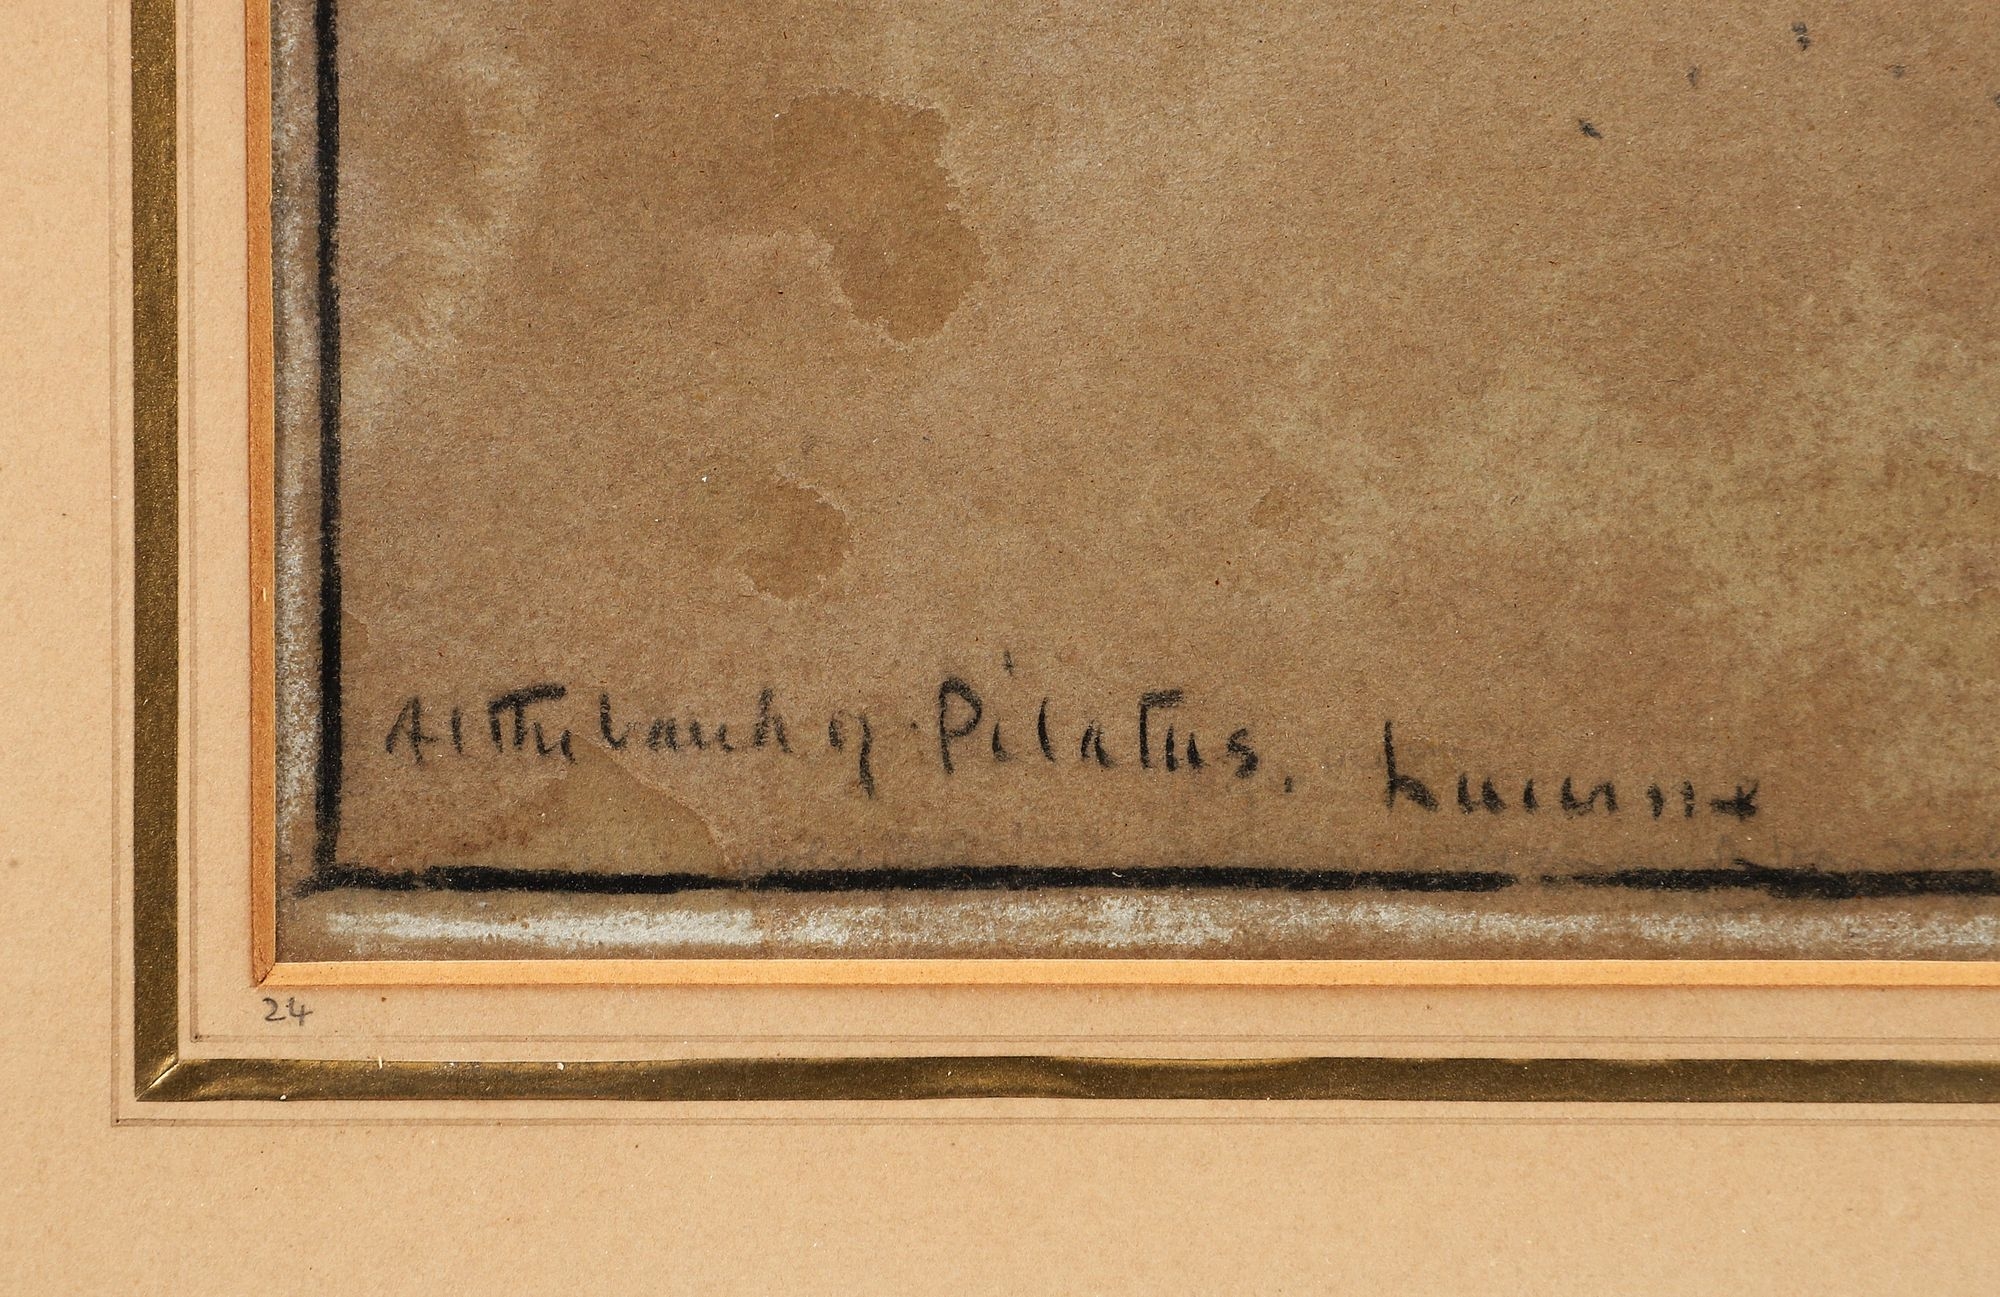 At the back of Pilatus. Lucerne
24